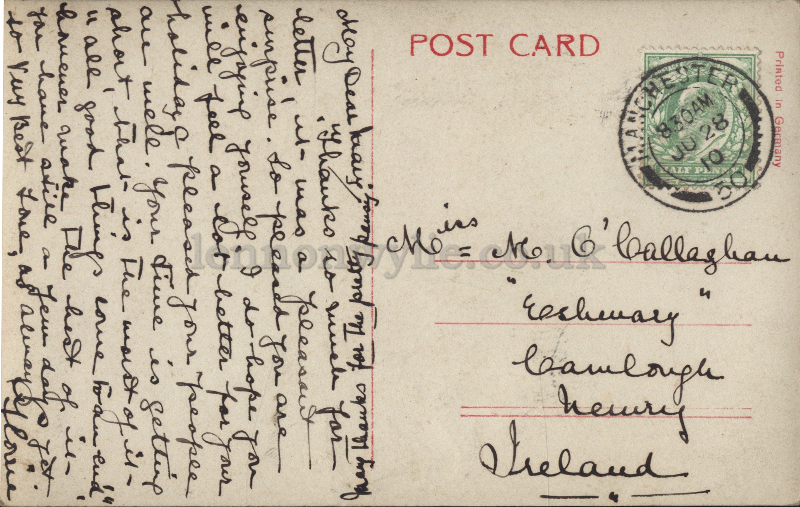 POST CARD
Printed in Germany
MANCHESTER
8 30 AM
JU 28
10
50
HALF PENNY
Miss M. O'Callaghan
"Eshwary"
Camlough
Newry
Ireland
My Dear Mary
Thanks so much for
letter, it was a pleasant
surprise. So pleased you are
enjoying yourself I do hope you
will feel a lot better for your
holiday & pleased your people
are well. Your time is getting
short that is the worst of it
"all good things come to an end"
however make the best of it
you have still a few days yet
so Very Best Love, as always
Many thanks for the good
lennonwylie.co.uk